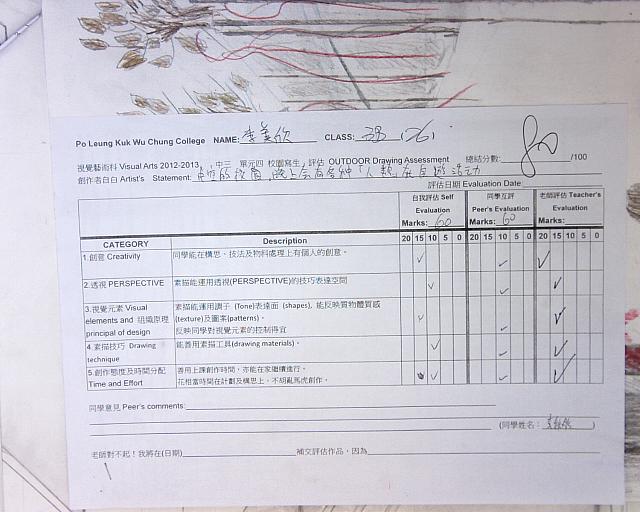 Po Leung Kuk Wu Chung College NAME: 李美欣 CLASS: 3B (26)
視覺藝術科 Visual Arts 2012-2013, 中三 單元四 校園寫生, 評估 OUTDOOR Drawing Assessment 總結分數: 80 /100
創作者自白 Artist's Statement: 的校園,
評估日期 Evaluation Date:
自我評估 Self Evaluation Marks: 60
同學互評 Peer's Evaluation Marks: 60
老師評估 Teacher's Evaluation Marks:
CATEGORY Description 20 15 10 5 0 20 15 10 5 0 20 15 10 5 0
1.創意 Creativity 同學能在構思、技法及物料處理上有個人的創意。
2.透視 PERSPECTIVE 素描能運用透視(PERSPECTIVE)的技巧表達空間
3.視覺元素 Visual elements and 組織原理 principal of design
素描能運用調子 (Tone)表達面 (shapes), 能反映質物體質感
(texture)及圖案(patterns)。
反映同學對視覺元素的控制得宜
4.素描技巧 Drawing technique 能善用素描工具(drawing materials)。
5.創作態度及時分配 Time and Effort
善用上課創作時間，亦能在家繼續進行。
花相當時間在計劃及構思上，不胡亂馬虎創作。
同學意見 Peer's comments:
(同學姓名: )
老師對不起！我將在(日期) 補交評估作品，因為